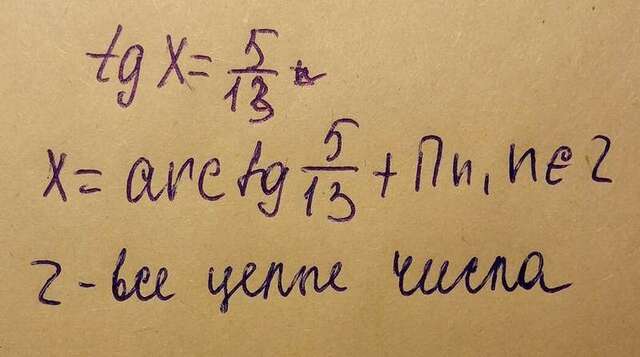 tg x = 5/13
x = arctg 5/13 + Πn, n ∈ Z
Z - все целые числа